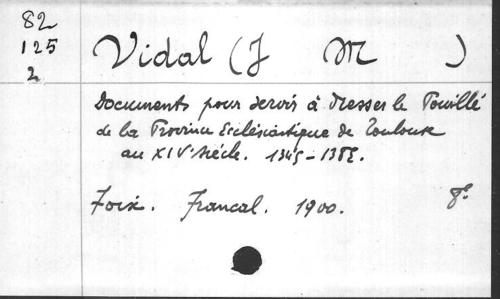 82
125
2
Vidal (J M )
Documents pour servir à dresser le Pouillé
de la Province Ecclésiastique de Toulouse
au XIVe siécle. 1345-1385.
Foix. Francal. 1900. 8º